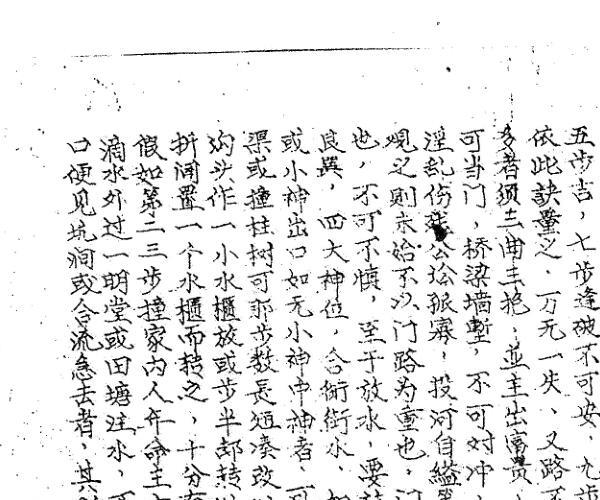 五步吉，七步逢破不可安，九步
依此诀量之，万无一失、又路不
多者须三曲三抱，並主出富贵
可当门，桥梁墙堑，不可对冲，
淫乱伤 公讼孤寡，投河自缢
观之则未始不以门路为重也，门
也，不可不慎，至于放水，要
良異，四大神位，合衙街水，如
或小神出口如无小神中神者，可
渠或撞柱树可那步数長短凑改
沟头作一小水櫃放或步半部转
折闸置一个水櫃而转之，十分
假如第二三步撞家内人年命主
滴水外过一明堂或田塘注水，可
口便见坑涧或合流急去者，其